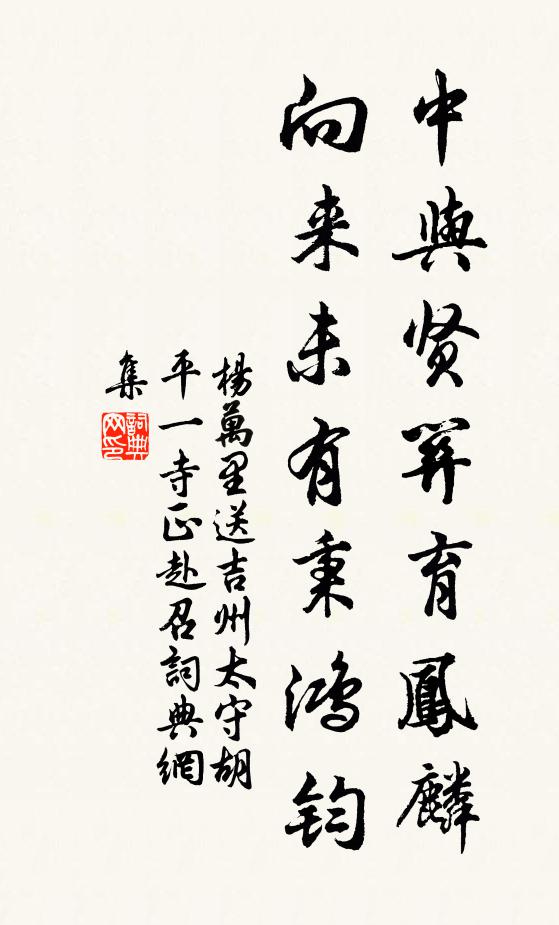 中興贤關育鳳麟
向来未有秉鸿钧
楊萬里送吉州太守胡
平一寺正赴召詞典網
集
詞典
网印